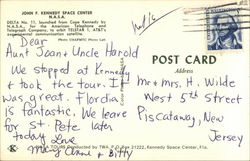 JOHN F. KENNEDY SPACE CENTER
N.A.S.A.
DELTA No. 11, launched from Cape Kennedy by
N.A.S.A., for the American Telephone and
Telegraph Company, to orbit TELSTAR 1, AT&T's
experimental communication satellite.
Dear
Aunt Jean & Uncle Harold
We stopped at Kennedy
& took the tour. It
was great. Flordia
is fantastic. We leave
for St. Pete later
today Love
Mary Anne & Bitty
POST CARD
Address
Mr & Mrs. H. Wilde
West 5th street
Piscataway, New
Jersey
TOURS Conducted by TWA, P.O. Box 21222, Kennedy Space Center, Fla.